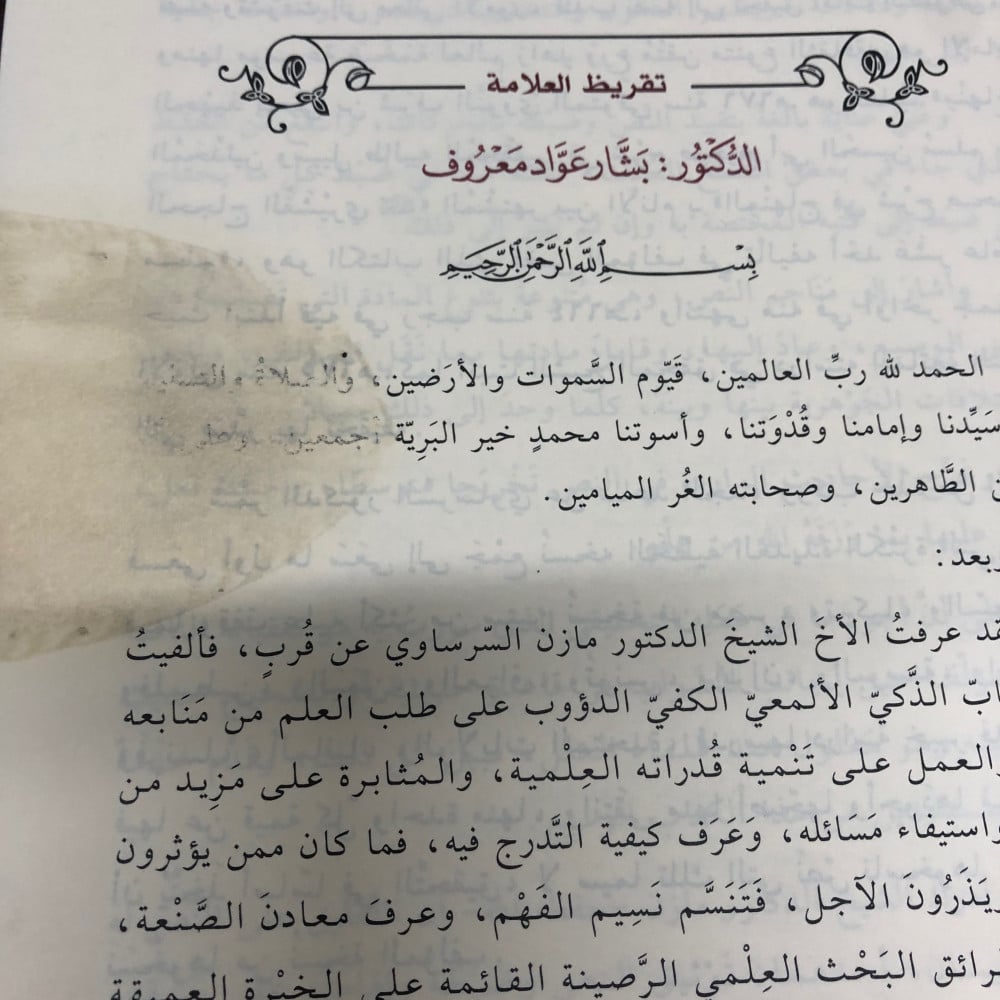 تقريظ العلامة
الدُّكْتُور: بَشَّار عَوَّاد مَعْرُوف
بِسْـــــمِ اللَّهِ الرَّحْمَنِ الرَّحِيمِ
الحمد لله ربِّ العالمين، قَيّوم السَّموات والأرَضين، والصلاةُ
سَيِّدنا وإمامنا وقُدْوَتنا، وأسوتنا محمدٍ خير البَرِيّة أجمعين،
الطَّاهرين، وصحابته الغُر الميامين.
وبعد:
عرفتُ الأخَ الشيخَ الدكتور مازن السّرساوي عن قُربٍ، فألفيتُ
الذَّكيّ الألمعيّ الكفيّ الدؤوب على طلب العلم من مَنَابعه
والعمل على تَنْمية قُدراته العِلْمية، والمُثابرة على مَزِيد من
واستيفاء مَسَائله، وَعَرَف كيفية التَّدرج فيه، فما كان ممن يؤثرون
ويَذَرُونَ الآجل، فَتَنَسَّم نَسِيم الفَهْم، وعرفَ معادنَ الصَّنْعة،
البَحْث العِلْمي الرَّصينة القائمة على الخِبْرة العميقة